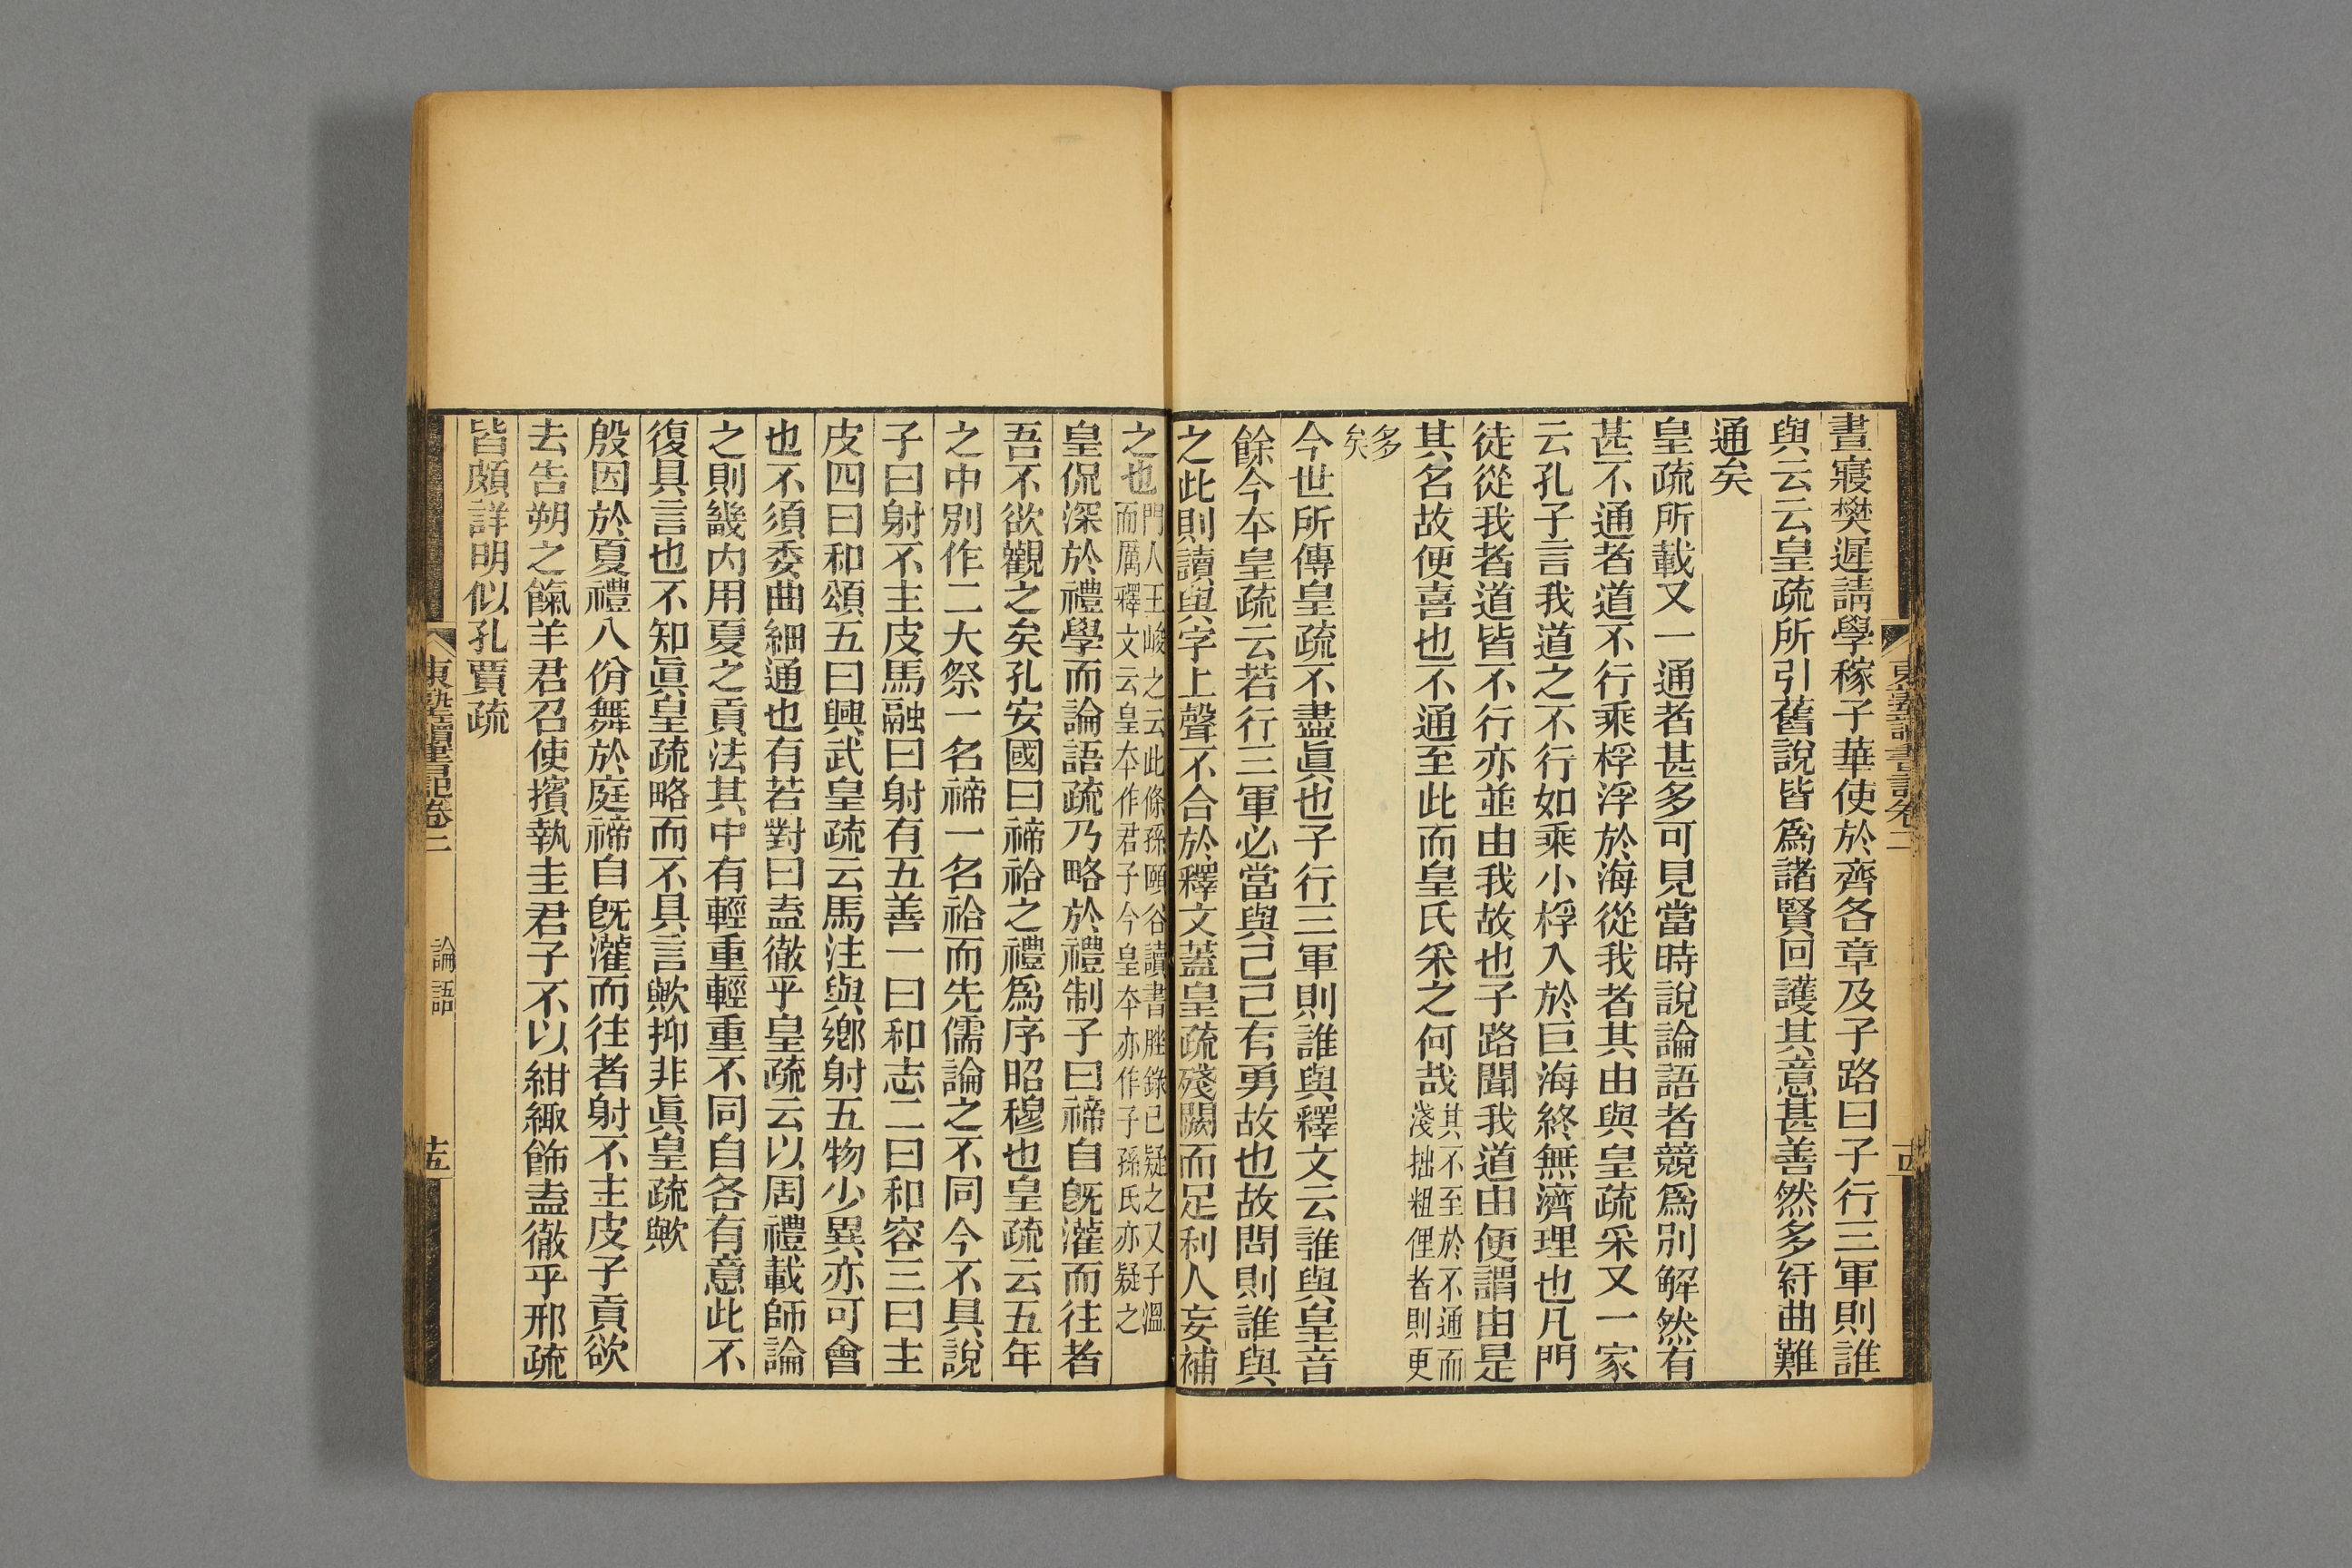 東塾讀書記卷二
晝寢樊遲請學稼子華使於齊各章及子路曰子行三軍則誰
與云云皇疏所引舊說皆爲諸賢回護其意甚善然多紆曲難
通矣
皇疏所載又一通者甚多可見當時說論語者競爲別解然有
甚不通者道不行乘桴浮於海從我者其由與皇疏采又一家
云孔子言我道之不行如乘小桴入於巨海終無濟理也凡門
徒從我者道皆不行亦並由我故也子路聞我道由便謂由是
其名故便喜也不通至此而皇氏采之何哉其不至於不通而淺拙粗俚者則更
多矣
今世所傳皇疏不盡眞也子行三軍則誰與釋文云誰與皇音
餘今本皇疏云若行三軍必當與己己有勇故也故問則誰與
之此則讀與字上聲不合於釋文蓋皇疏殘闕而足利人妄補
之也門人王峻之云此條孫頤谷讀書脞錄已疑之又子溫而厲釋文云皇本作君子今皇本亦作子孫氏亦疑之
皇侃深於禮學而論語疏乃略於禮制子曰禘自旣灌而往者
吾不欲觀之矣孔安國曰禘祫之禮爲序昭穆也皇疏云五年
之中別作二大祭一名禘一名祫而先儒論之不同今不具說
子曰射不主皮馬融曰射有五善一曰和志二曰和容三曰主
皮四曰和頌五曰興武皇疏云馬注與鄉射五物少異亦可會
也不須委曲細通也有若對曰盍徹乎皇疏云以周禮載師論
之則畿内用夏之貢法其中有輕重輕重不同自各有意此不
復具言也不知眞皇疏略而不具言歟抑非眞皇疏歟
殷因於夏禮八佾舞於庭禘自旣灌而往者射不主皮子貢欲
去告朔之餼羊君召使擯執圭君子不以紺緅飾盍徹乎邢疏
皆頗詳明似孔賈疏
東塾讀書記卷二
論語